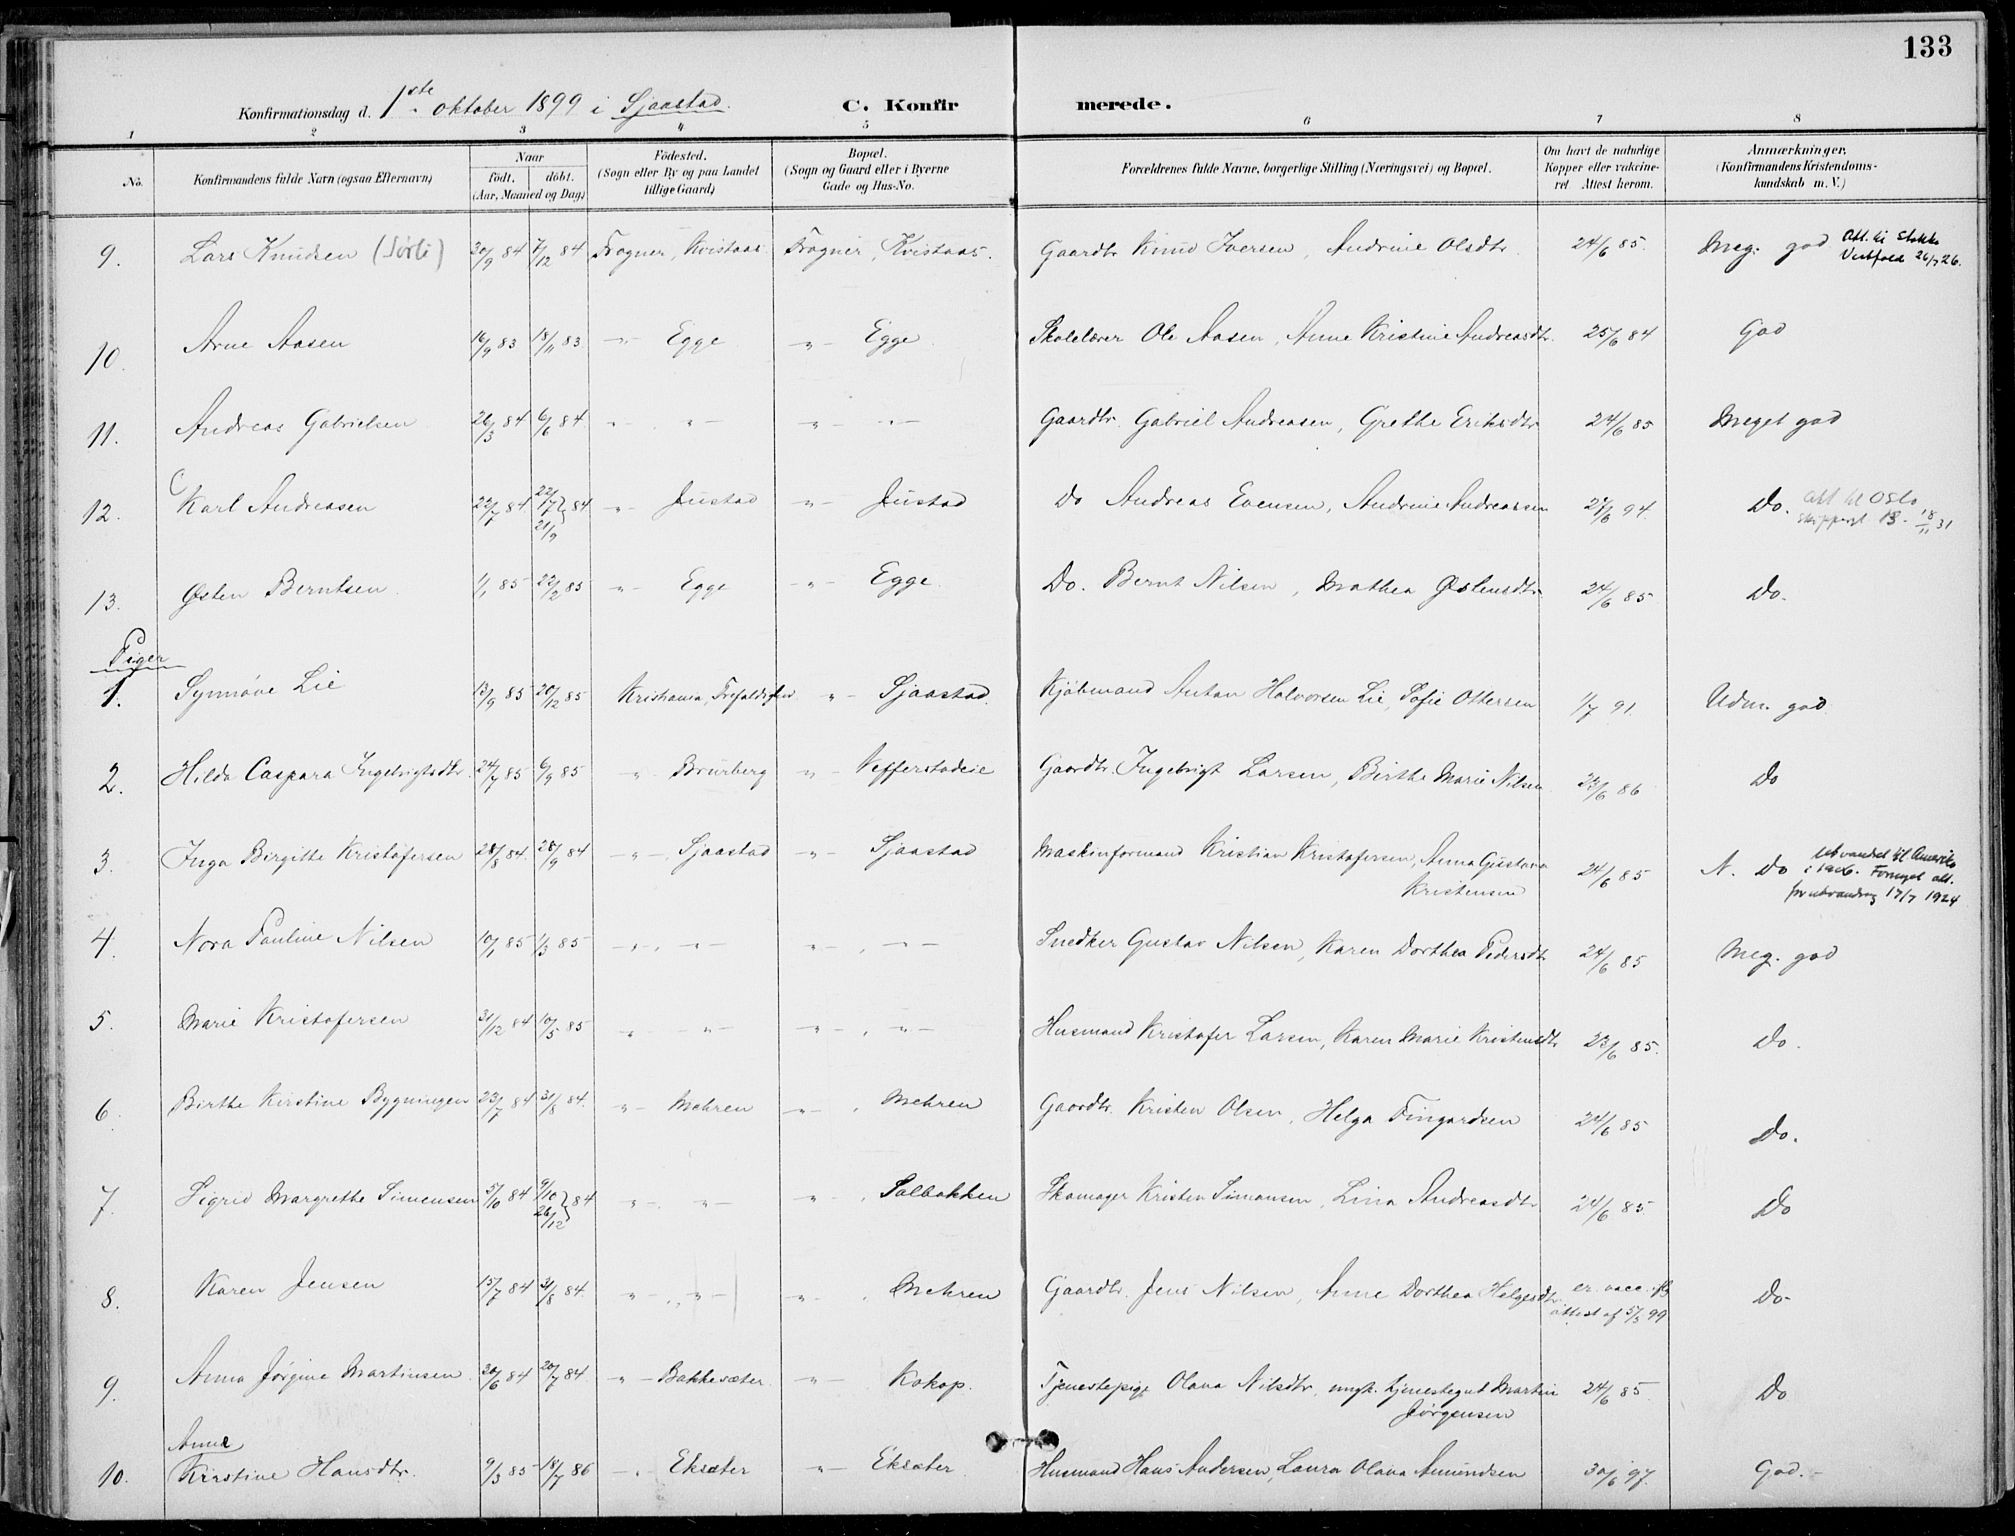 133
Konfirmationsdag d. 1ste oktober 1899 i Sjaastad.
C. Konfirmerede.
1 2 3 4 5 6 7 8
No.
Konfirmandens fulde Navn (ogsaa Efternavn)
Naar
födt. döbt.
(Aar, Maaned og Dag)
Födested.
(Sogn eller By og paa Landet
tillige Gaard)
Bopæl.
(Sogn og Gaard eller i Byerne
Gade og Hus-No.
Forældrenes fulde Navne, borgerlige Stilling (Næringsvei) og Bopæl.
Om havt de naturlige
Kopper eller vakcine-
ret Attest herom.
Anmærkninger.
(Konfirmandens Kristendoms-
kundskab m. V.)
9. Lars Knudsen (Sørli) 30/9 84 7/12 84 Frogner, Kvistaas Frogner, Kvistaas. Gaardbr. Knud Iversen, Andrine Olsdtr. 24/6 85. Meg. god Att. til Stokke
Vestfold 26/7 26.
10. Arne Aasen 16/9 83 18/11 83 -"- Egge -"- Egge Skolelærer Ole Aasen, Anne Kristine Andreasdtr. 25/6 84 God
11. Andreas Gabrielsen 26/3 84 6/6 84 -"- -"- -"- -"- Gaardbr. Gabriel Andreasen, Grethe Eriksdtr 24/6 85 Meget god
12. Karl Andreasen 22/7 84 22/7 21/9 } 84 -"- Justad -"- Justad Do Andreas Evensen, Andrine Andreassen 27/6 94. Do. Att til Oslo
18/11 31
13. Østen Berntsen 1/1 85 22/2 85 -"- Egge -"- Egge. Do. Bernt Nilsen, Mathea Østensdtr. 24/6 85 Do.
Piger
1. Synnøve Lie 13/9 85 20/12 85 Kristiania, -"- Sjaastad. Kjøbmand Anton Halvorsen Lie, Sofie Ottersen 1/7 91. Udm. god.
2. Hilda Caspara Ingebrigtsdtr. 24/7 85 6/9 85 -"- Brurberg -"- Vefferstadeie Gaardbr. Ingebrigt Larsen, Birthe Marie Nilsen 23/6 86 Do
3. Inga Birgitte Kristofersen 28/8 84. 28/9 84 -"- Sjaastad -"- Sjaastad Maskinformand Kristian Kristofersen, Anna Gustava
Kristensen 24/6 85 N. Do Utvandret til Amerika
i 1906. Fornyet att.
for utvandring 17/7 1924
4. Nora Pauline Nilsen 10/1 85 1/3 85 -"- -"- -"- -"- Snedker Gustav Nilsen, Karen Dorthea Pedersdtr 24/6 85 Meg. god
5. Marie Kristofersen 31/12 84 10/5 85 -"- -"- -"- -"- Husmand Kristofer Larsen, Karen Marie Kristensdtr 23/6 85. Do.
6. Birthe Kirstine Bygningen 23/7 84 31/8 84. -"- Mehren -"- Mehren Gaardbr. Kristen Olsen, Helga Fingardsen 24/6 85 Do.
7. Sigrid Margrethe Simensen 5/10 84 9/10 26/12 } 84 -"- -"- -"- Solbakken Skomager Kristen Simonsen, Lina Andreasdtr. 24/6 85. Do
8. Karen Jensen 15/7 84 31/8 84. -"- -"- -"- Mehren Gaardbr. Jens Nilsen, Anne Dorthea Helgesdtr. er vacc. iflg
attest af 5/5 99 Do.
9. Anna Jørgine Martinsen. 20/6 84 20/7 84. -"- Bakkesæter. -"- Kokop. Tjenestepige Olava Nilsdtr. ungk. tjenestegut Martin
Jørgensen 24/6 85. Do
10. Anne
Kirstine Hansdtr. 9/3 85 18/7 86 -"- Eksæter -"- Eksæter Husmand Hans Andersen, Laura Olava Amundsen 30/6 97. God.